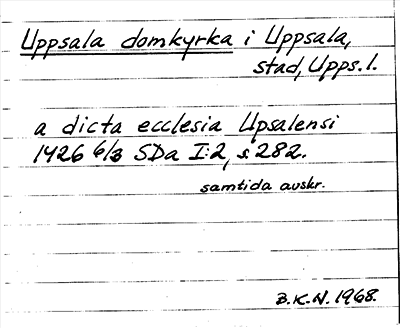 Uppsala domkyrka i Uppsala,
stad, Upps. l.
a dicta ecclesia Upsalensi
1426 6/3 SDa I:2, s. 282.
samtida avskr.
B.K.H. 1968.